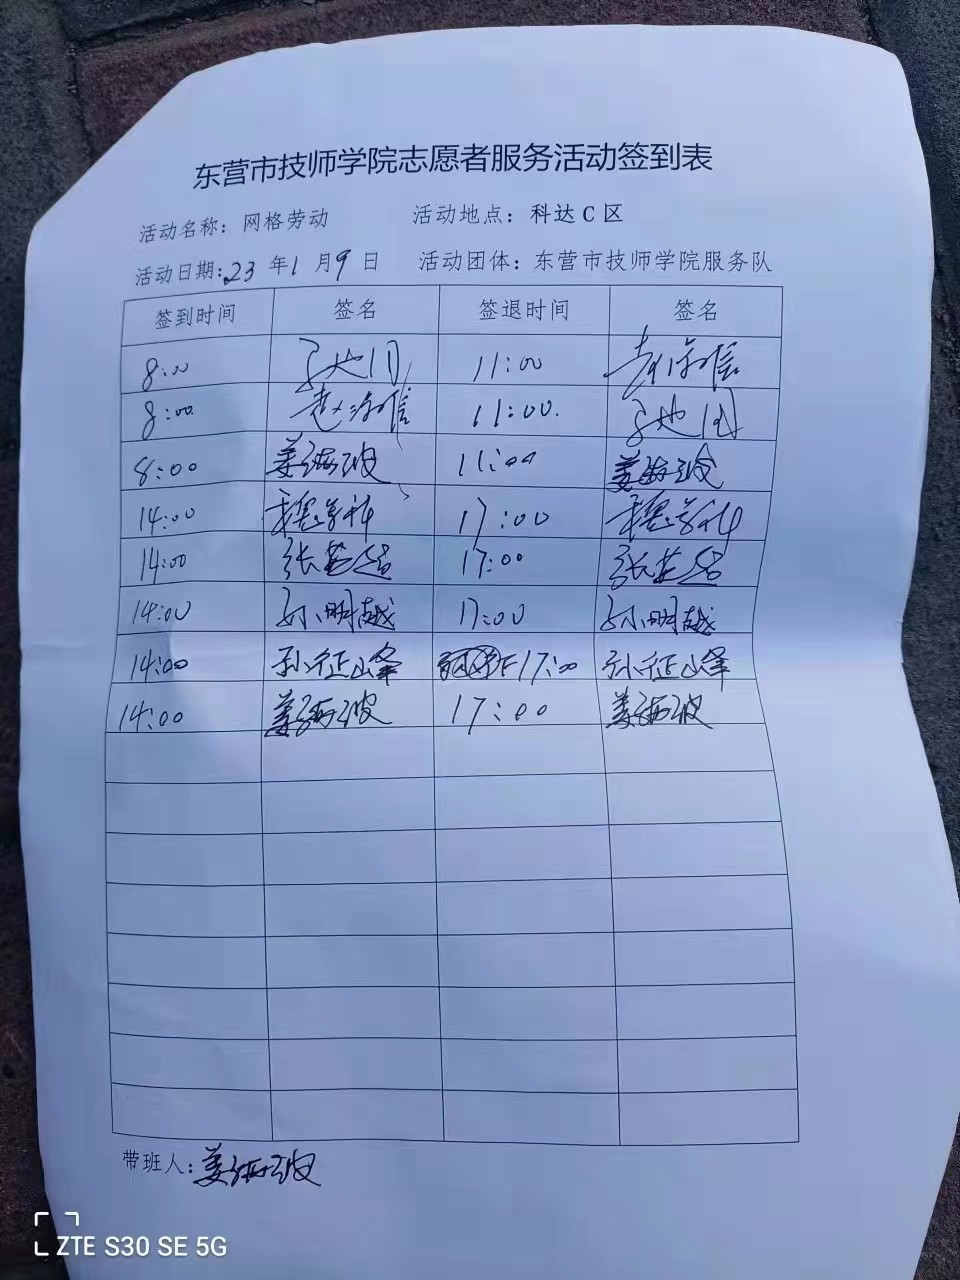 东营市技师学院志愿者服务活动签到表
活动名称：网格劳动 活动地点：科达 C 区
活动日期：23 年 1 月 9 日 活动团体：东营市技师学院服务队
签到时间 签名 签退时间 签名
8:00 11:00
8:00 11:00.
8:00 姜海波 11:00 姜海波
14:00 17:00
14:00 17:00
14:00 孙明越 17:00 孙明越
14:00 孙征峰 17:00 孙征峰
14:00 姜海波 17:00 姜海波
带班人：姜海波
ZTE S30 SE 5G